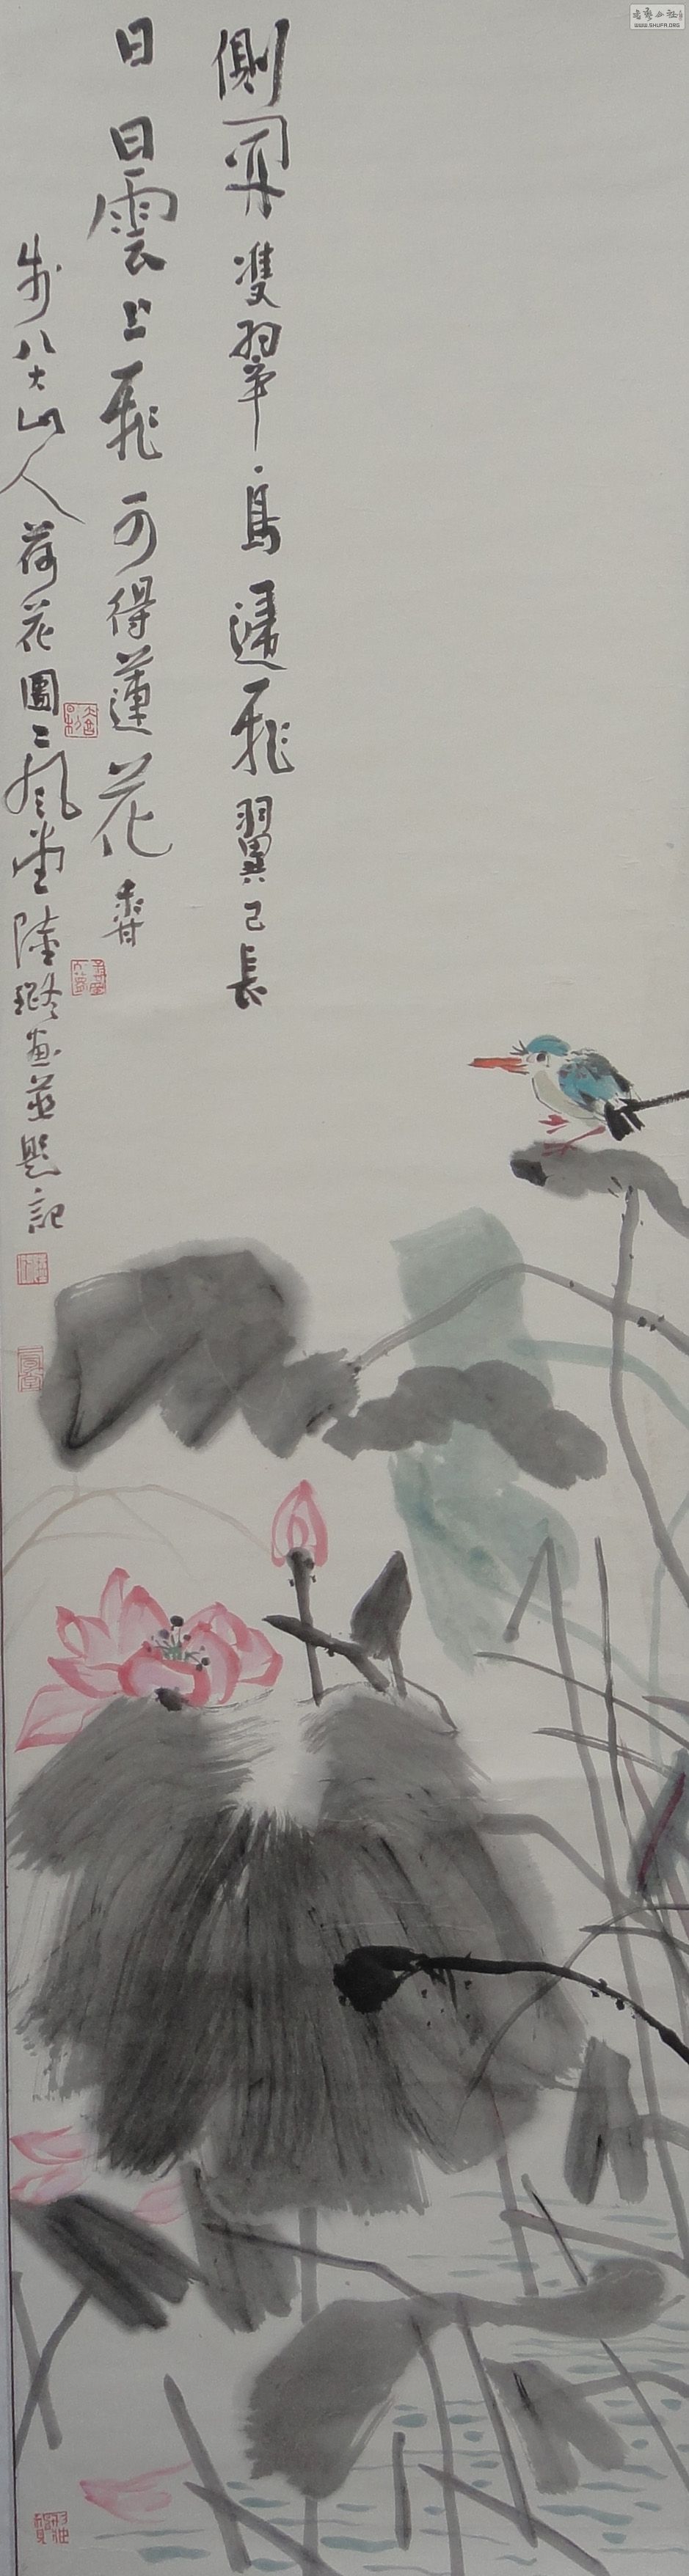 側聞雙翠鳥歸飛翼已長
日日雲上飛可得蓮花香
步八大山人荷花圖二風堂陸畫並題記
WWW.SHUFA.ORG